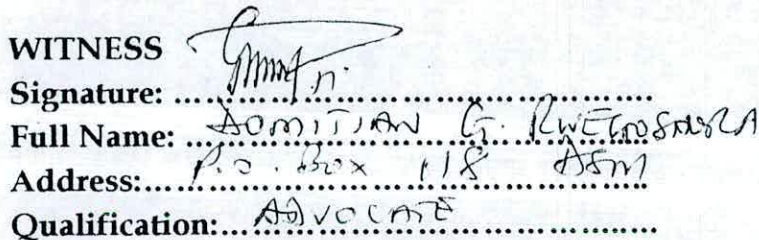 WITNESS
Signature: ............................................
Full Name: DOMITIAN G.
Address:..... P.O. Box 118 DSM
Qualification:... ADVOCATE ....................